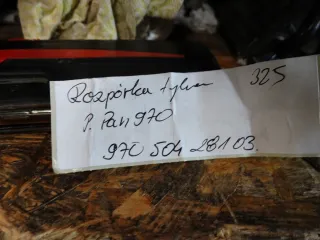 Rozpórka tylna 325
P. Pan 970
970 504 281 03.